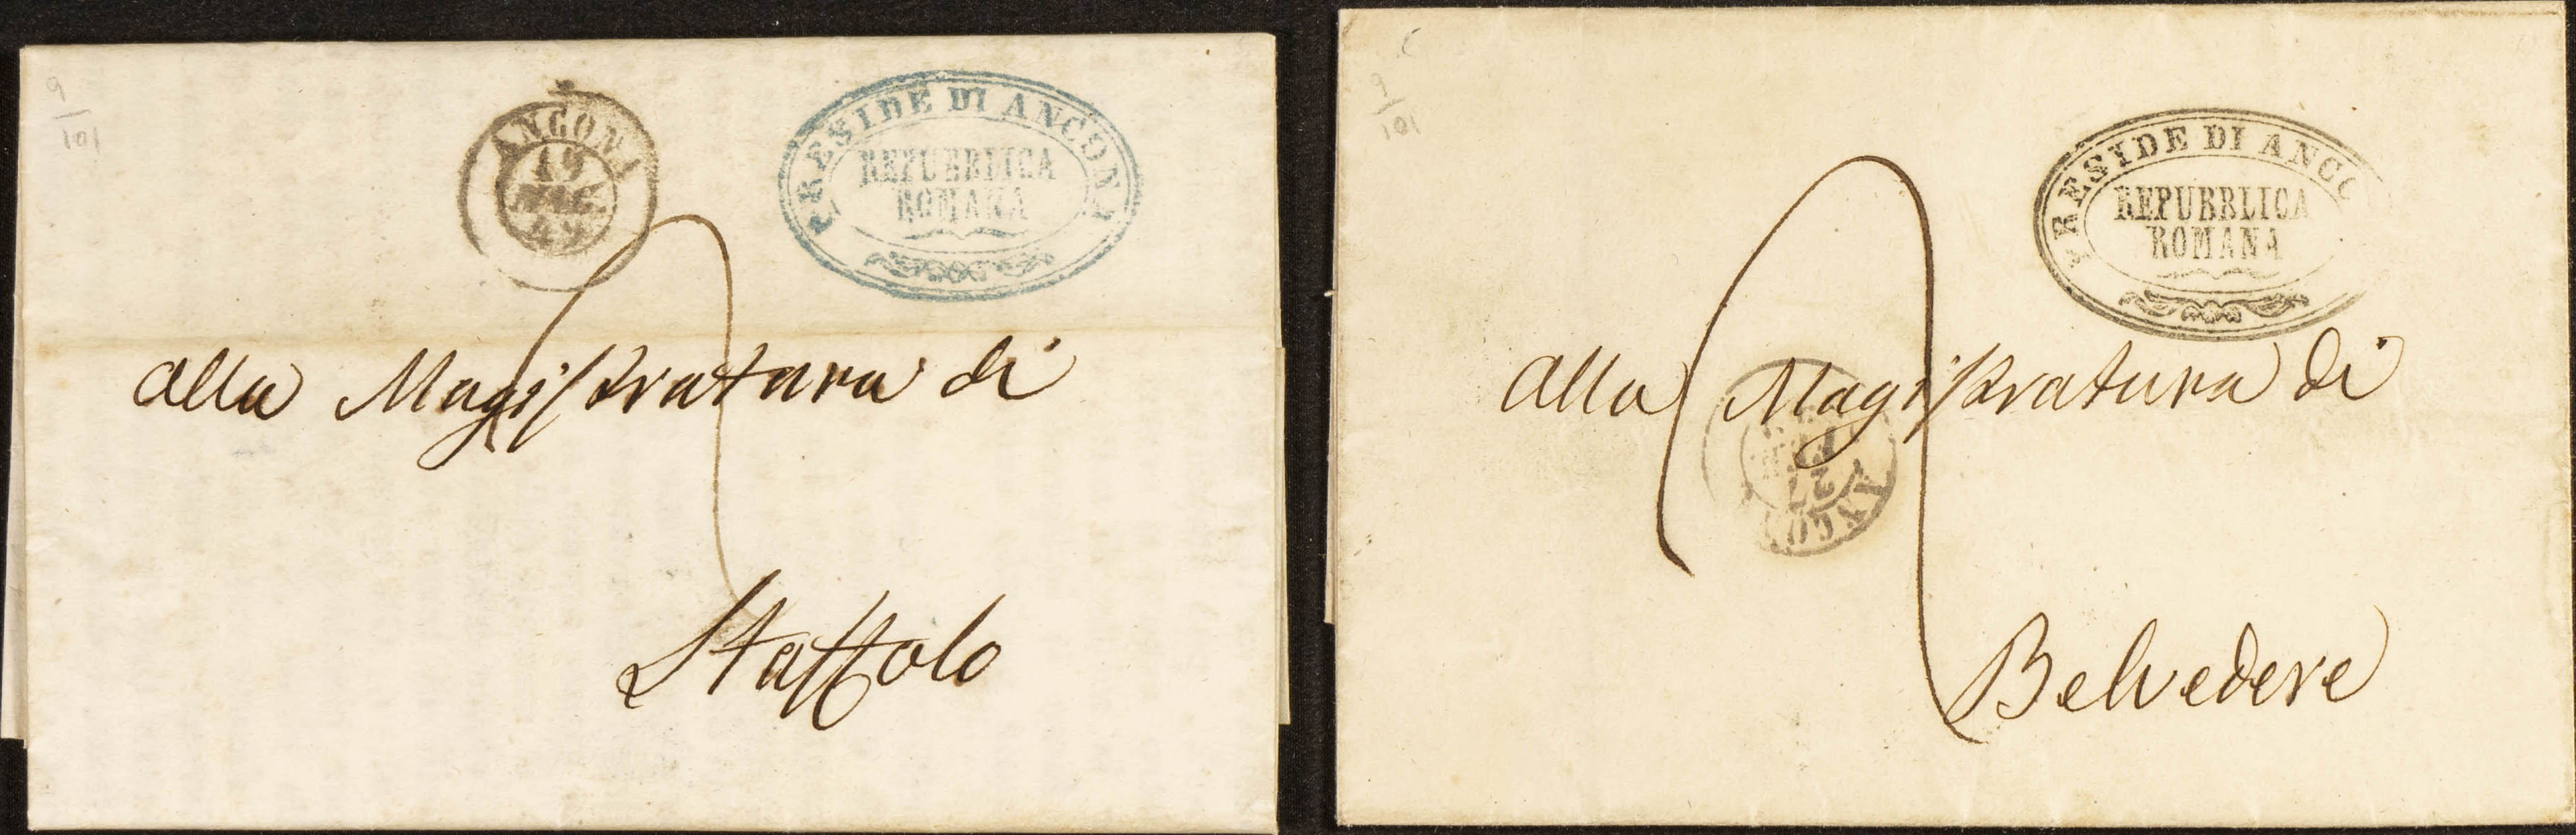 9
101
ANCONA
19
MAG.
49
PRESIDE DI ANCONA
REPUBBLICA
ROMANA
alla Magistratura di
Staffolo
9
101
PRESIDE DI ANCO
REPUBBLICA
ROMANA
alla Magistratura di
ANCO
27
Belvedere